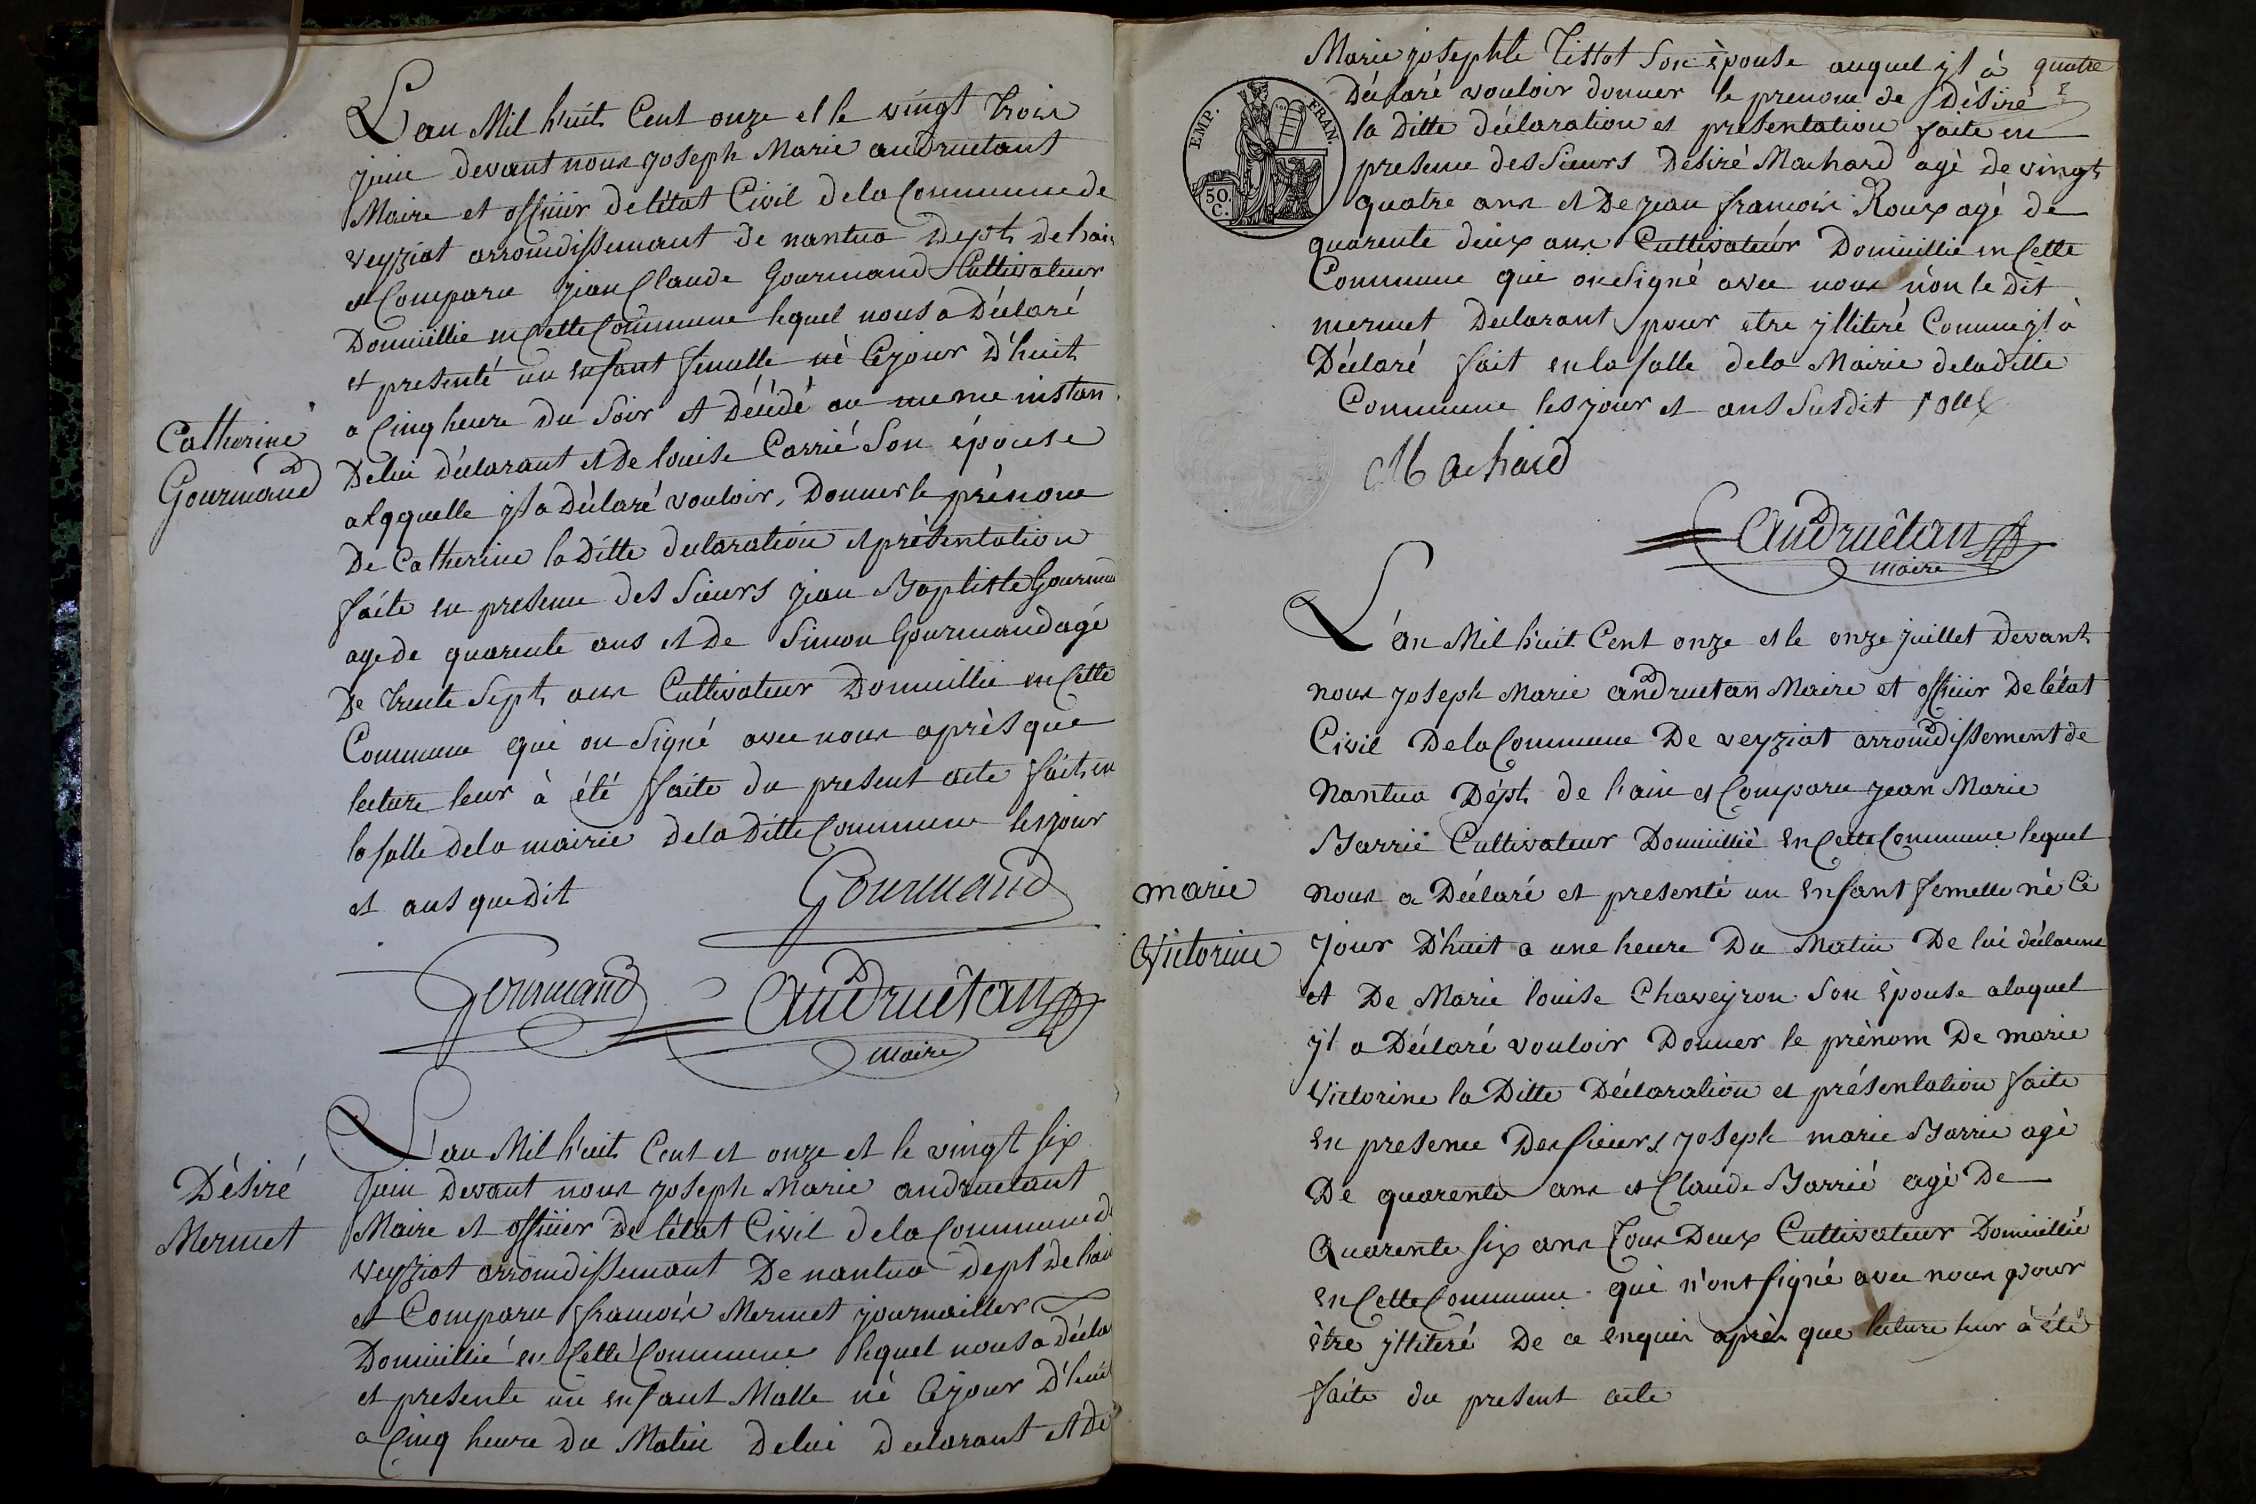 L'an Mil huit Cent onze et le vingt trois
juin devant nous joseph Marie andruetant
Maire et officier de létat Civil dela Commune de
veyziat arrondissemant de nantua Dept. De lain
et Comparu jean Claude Gourmand Cultivateur
Domicillié en Cette Commune lequel nous a Déclaré
et presenté un enfant femelle né Cejour D'huit
a Cinq heure du Soir et Décédé au meme instan
Catherine
Gourmand
De lui déclarant et de louise Carrié Son épouse
alaqquelle yl a déclaré vouloir, Donner le prénom
De Catherine la Ditte declaration et présentation
faite en presence des Sieurs jean Baptiste Gourmand
age de quarente ans et De Simon Gourmand agé
De trente Sept ans Cultivateur Domicillié en Cette
Commune qui on Signé avec nous après que
lecture leur à été faite du present acte fait en
la salle dela mairie dela Ditte Commune les jour
et ans que dit
Gourmand
Gourmand
andruétan
maire
Désiré
Mermet
L'an Mil huit Cent et onze et le vingt six
juin Devant nous joseph Marie andruetant
Maire et officier De létat Civil dela Commune de
veyziat arrondissemant De nantua dept De lain
et Comparu francois Mermet journailler
Domicillié en Cette Commune lequel nous a décla
et presente un enfant Malle né Cejour D'huit
a Cinq heure Du Matin De lui declarant et De
Marie josephte Tissot Son épouse auquel yl à quatre
Déclaré vouloir donner le prenom de Désiré
EMP. FRAN.
50. C.
la Ditte déclaration et presentation faite en
presence des Sieurs Desiré Machard agé de vingt
quatre ans et De jean francois Roux agé de
quarente deux ans Cultivateur Domicillié en Cette
Commune qui on Signé avec nous n'on le dit
mermet Declarant pour etre ylliteré Comme yl à
Déclaré fait en la salle dela Mairie deladitte
Commune les jour et ans Susdit
Machard
andruétan
maire
L'an Mil huit Cent onze et le onze juillet Devant
nous joseph Marie andruetan Maire et officier De létat
Civil De la Commune De veyziat arrondissement de
Nantua Dépt. de l'ain et Comparu jean Marie
Barrié Cultivateur Domicillié en Cette Commune lequel
marie
Victorine
nous a Déclaré et presenté un enfant femelle né Ce
jour D'huit a une heure Du Matin De lui déclarant
et De Marie louise Chaveyron Son épouse alaquel
yl a Déclaré vouloir Donner le prénom De marie
Victorine la Ditte Déclaration et présentation faite
en presence Des sieurs joseph marie Barrié agé
De quarente ans et Claude Barrié agé De
Quarente six ans Tous Deux Cultivateur Domicillié
en Cette Commune qui n'ont signé avec nous pour
être ylliteré De ce enquis après que lecture leur à été
faite du present acte